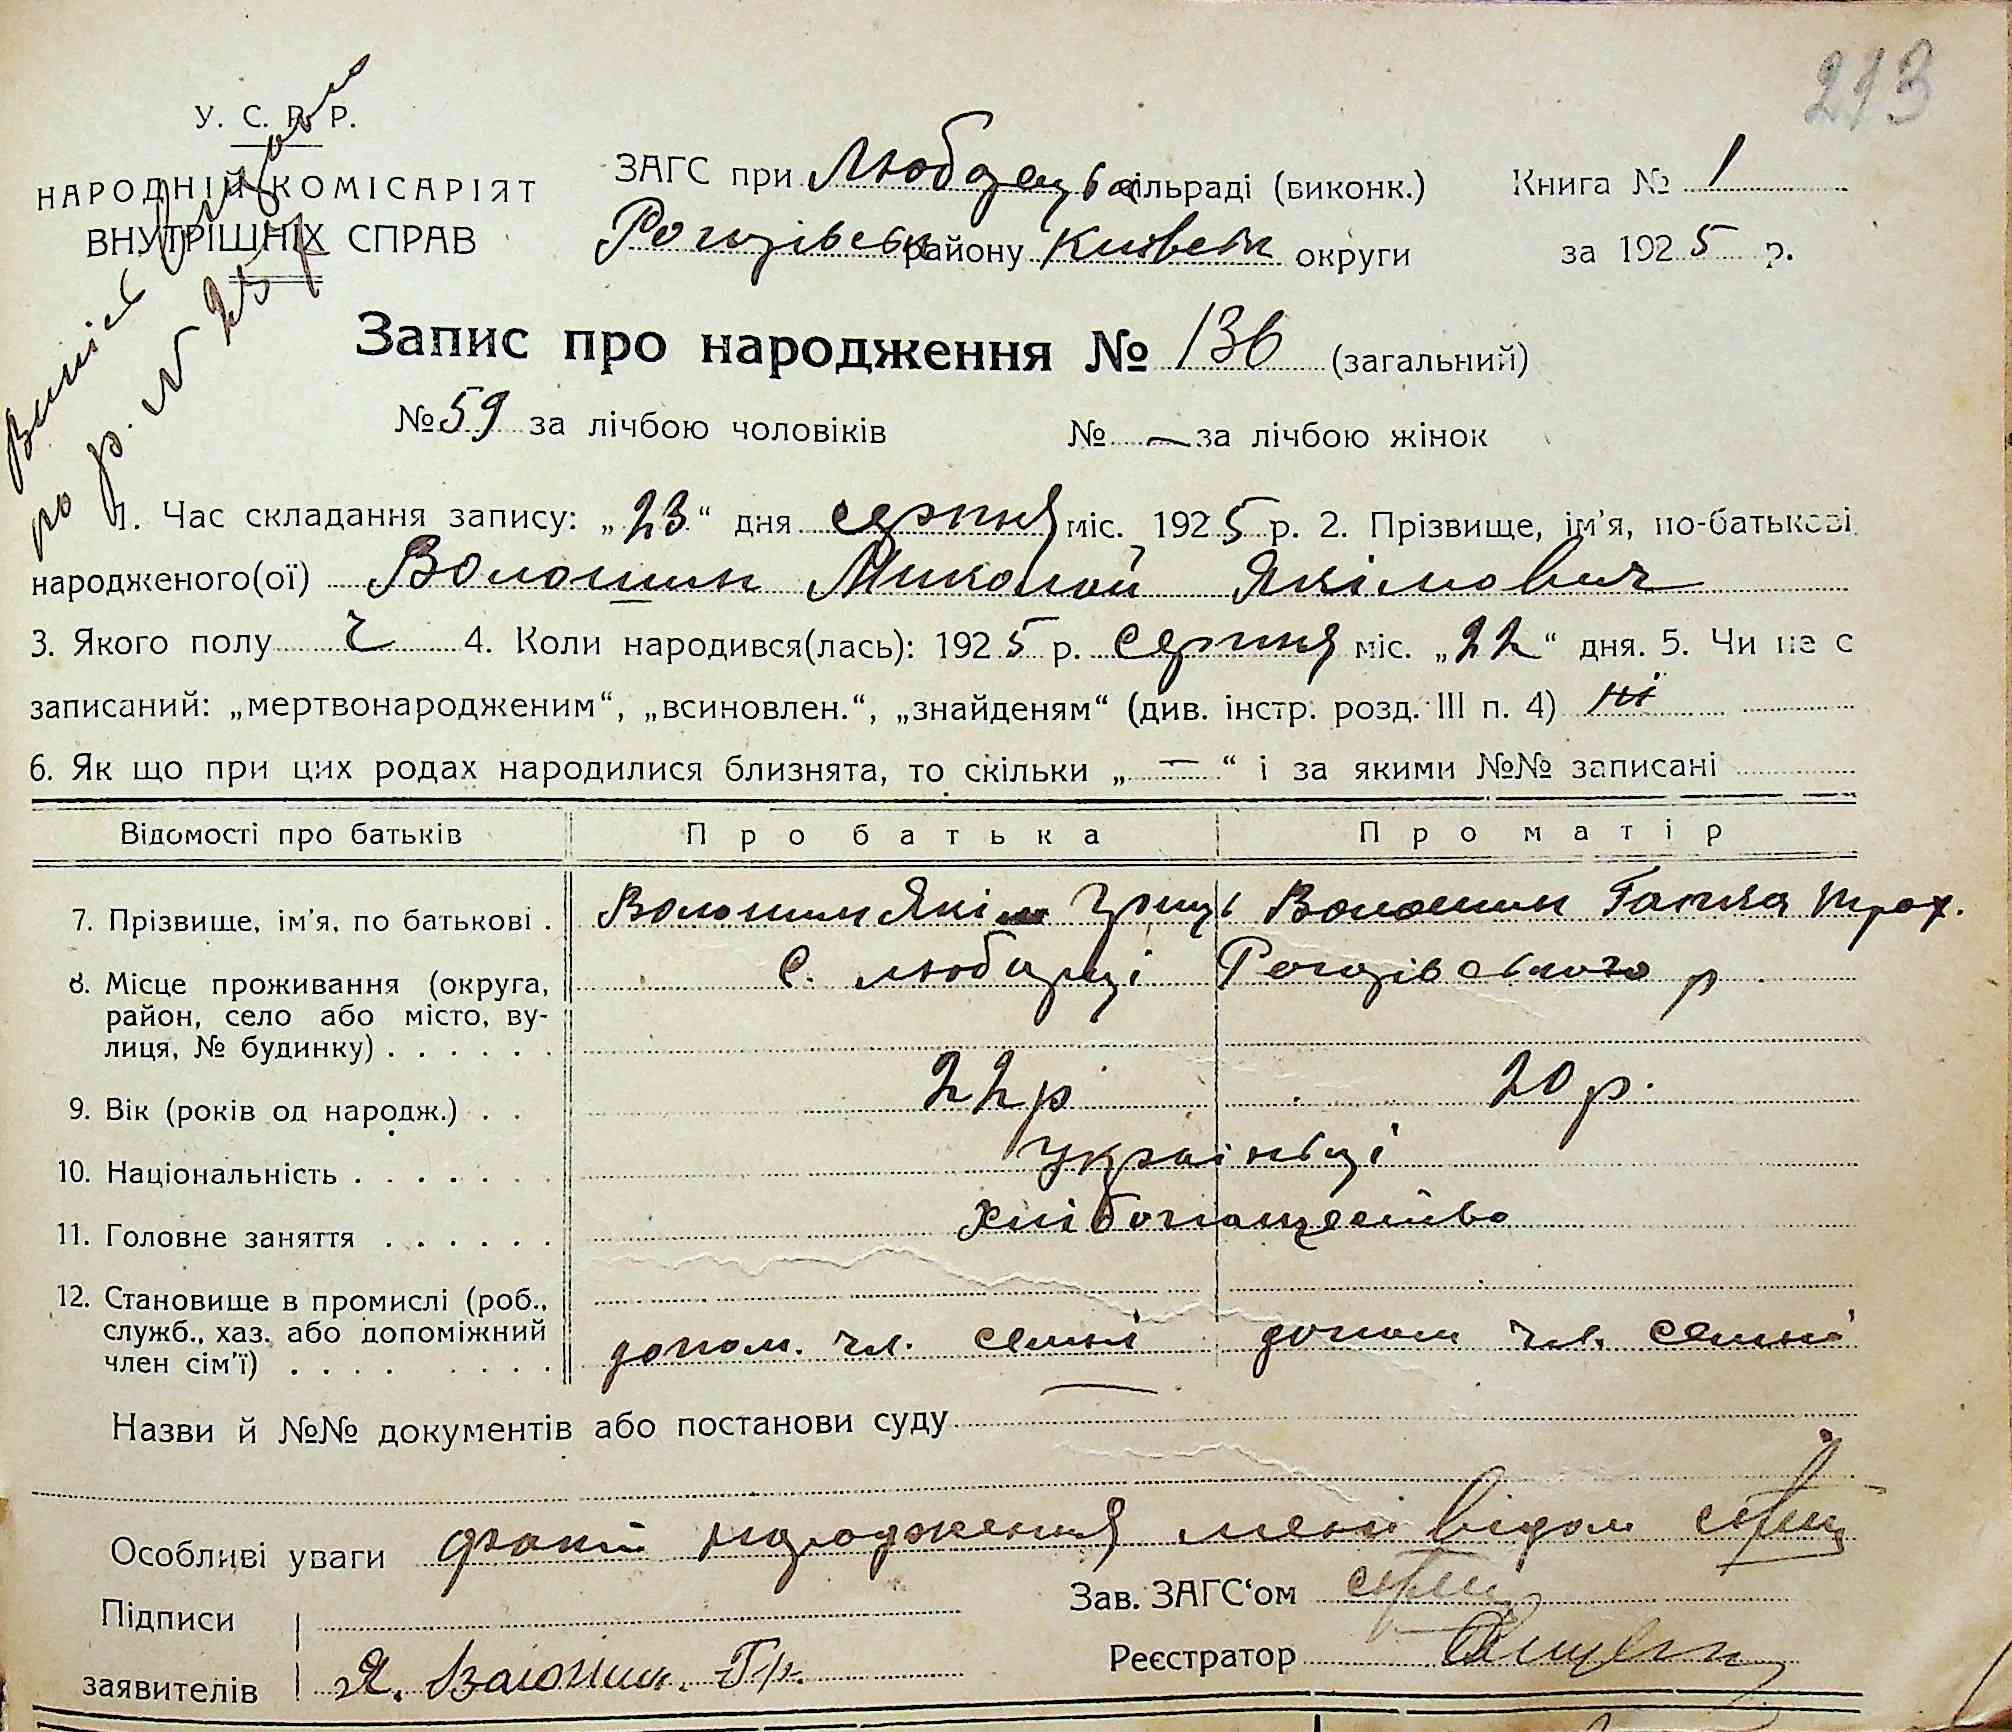 213
У. С. Р. Р.
НАРОДНІЙ КОМІСАРІЯТ
ВНУТРІШНІХ СПРАВ
ЗАГС при Любарець сільраді (виконк.)
Рогозівськ району Київськ округи
Книга № 1
за 1925 р.
Випіс видано
по р. №
Запис про народження № 136 (загальний)
№ 59 за лічбою чоловіків № — за лічбою жінок
1. Час складання запису: „23“ дня серпня міс. 1925 р. 2. Прізвище, ім'я, по-батькові
народженого(ої) Волошин Миколай Якімович
3. Якого полу ч 4. Коли народився(лась): 1925 р. серпня міс. „22“ дня. 5. Чи не є
записаний: „мертвонародженим“, „всиновлен.“, „знайденям“ (див. інстр. розд. III п. 4) ні
6. Як що при цих родах народилися близнята, то скільки „—“ і за якими №№ записані
Відомості про батьків Про батька Про матір
7. Прізвище, ім'я, по батькові . Волошин Якім Гриць Волошин Гапка Троx.
8. Місце проживання (округа, с. Любарці Рогозівського р
район, село або місто, ву-
лиця, № будинку) . . . . . .
9. Вік (років од народж.) . . 22 р 20 р.
10. Національність . . . . . . . українці
11. Головне заняття . . . . . . хлібопашество
12. Становище в промислі (роб.,
служб., хаз. або допоміжний
член сім'ї) . . . . . . . . допом. чл. семьі допом чл. семьі
Назви й №№ документів або постанови суду
Особливі уваги факт народження мені відом
Підписи
Зав. ЗАГС'ом
заявителів Я. Волошин. Гр.
Реєстратор